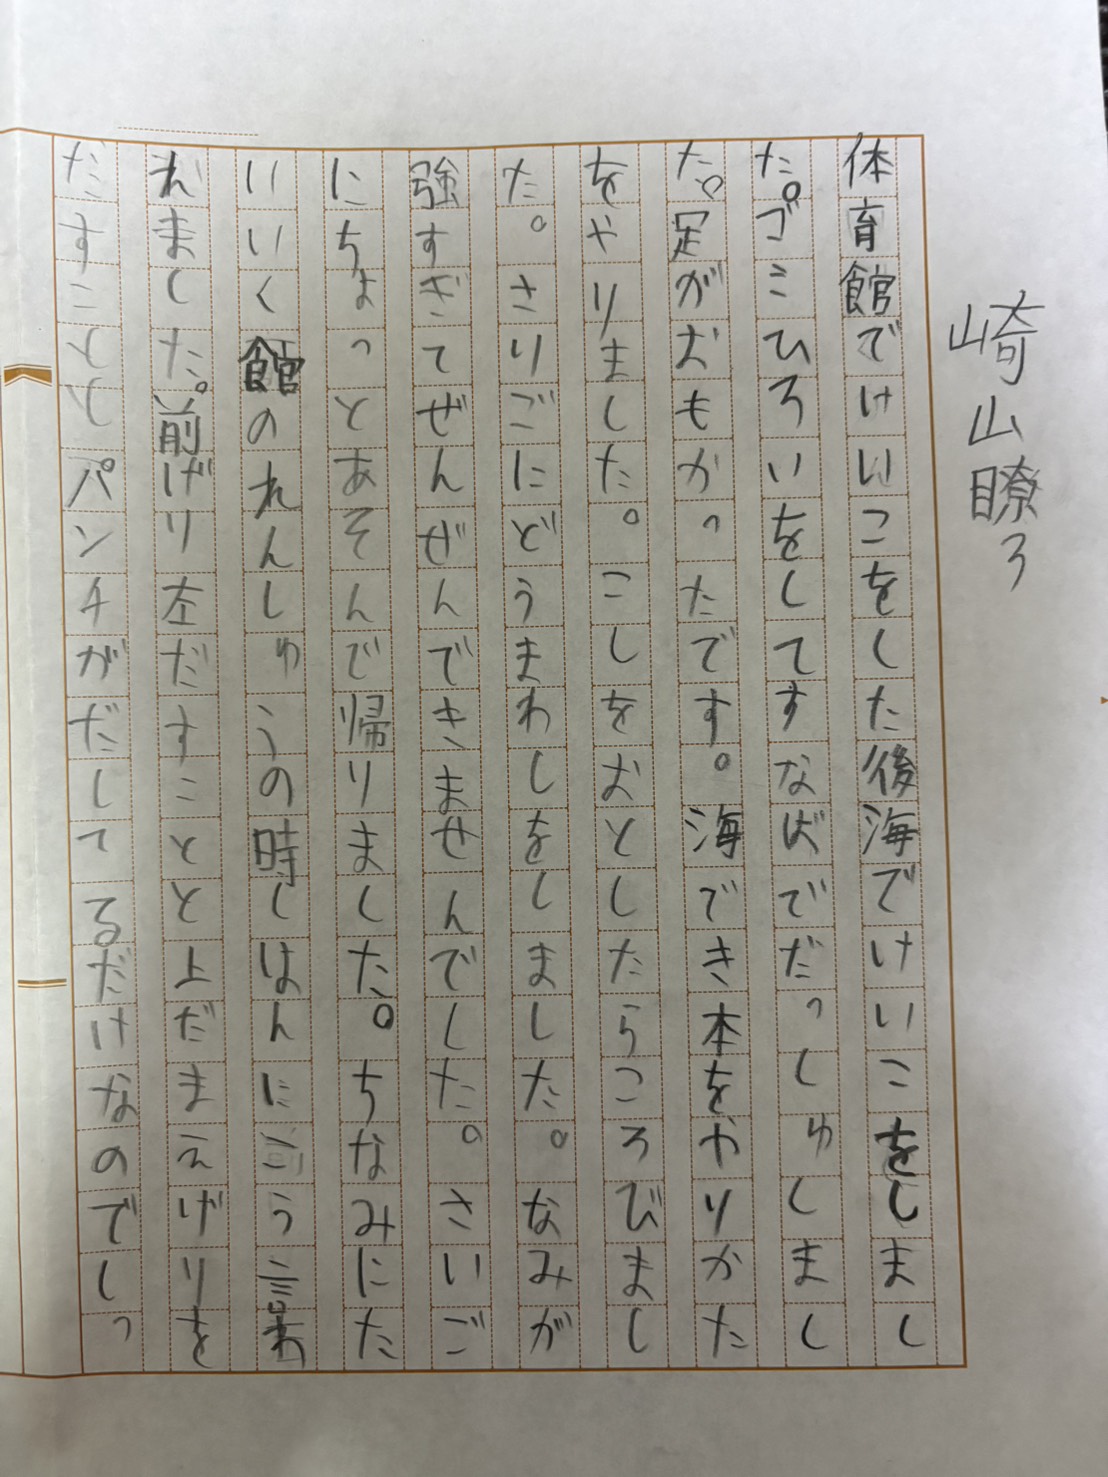 崎山瞭ろ
体育館でけいこをした後海でけいこをしまし
た。ゴミひろいをしてすなばでだっしゅしまし
た。足がおもかったです。海でき本をやりかた
をやりました。こしをおとしたらころびまし
た。さりごにどうまわしをしました。なみが
強すぎてぜんぜんできませんでした。さいご
にちょっとあそんで帰りました。ちなみにた
いいく館のれんしゅうの時しはんにこう言わ
れました。前げり左だすことと上だまえげりを
だすこととパンチがだしてるだけなのでしっ